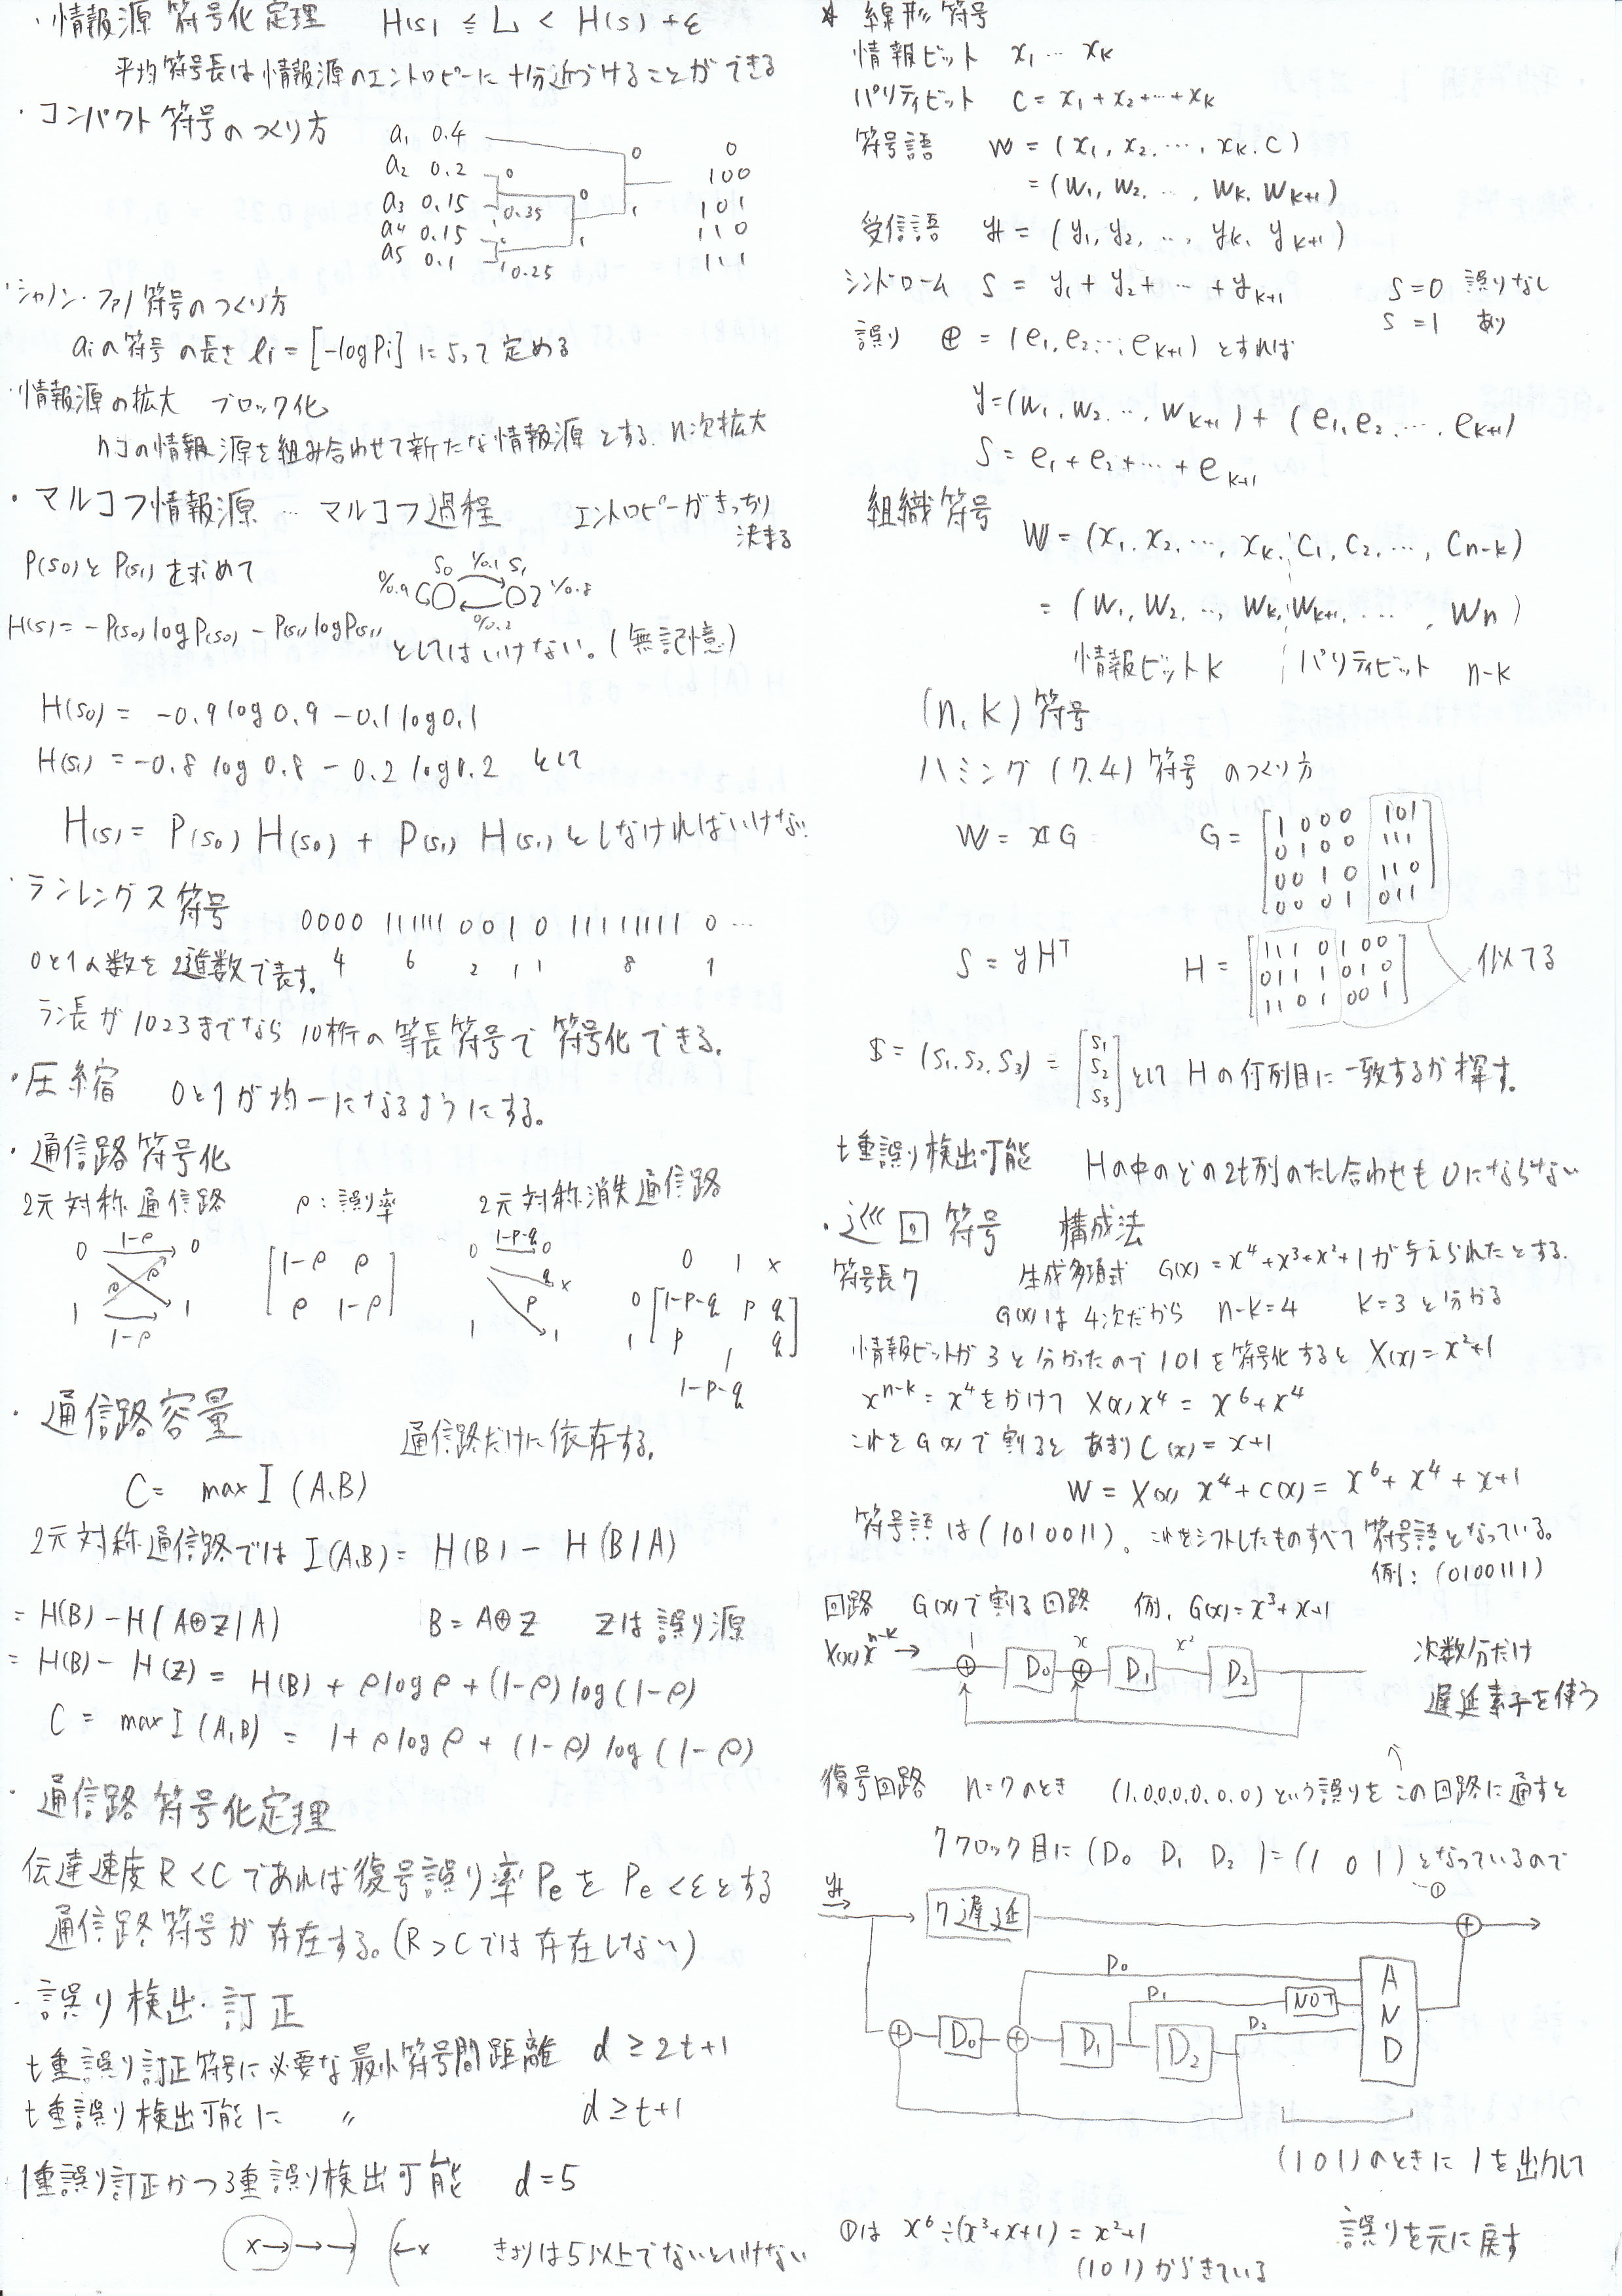 ・情報源符号化定理 H(S) ≦ L < H(S) + ε
平均符号長は情報源のエントロピーに十分近づけることができる
・コンパクト符号のつくり方
a1 0.4 0 0
a2 0.2 0 100
a3 0.15 0.35 0 1 101
a4 0.15 0 1 110
a5 0.1 1 0.25 111
・シャノン・ファノ符号のつくり方
aiの符号の長さ li = [-logPi] によって定める
・情報源の拡大 ブロック化
nコの情報源を組み合わせて新たな情報源とする. n次拡大
・マルコフ情報源 … マルコフ過程 エントロピーがきっちり
決まる
P(S0)とP(S1)を求めて
S0 1/0.1 S1
0/0.9 1/0.8
0/0.2
H(S) = -P(S0)logP(S0) - P(S1)logP(S1) としてはいけない。(無記憶)
H(S0) = -0.9log0.9 - 0.1log0.1
H(S1) = -0.8log0.8 - 0.2log0.2 として
H(S) = P(S0)H(S0) + P(S1)H(S1) としなければいけない
・ランレングス符号 0000 111111 00 1 0 11111111 0 …
0と1の数を2進数で表す。 4 6 2 1 1 8 1
ラン長が1023までなら10桁の等長符号で符号化できる.
・圧縮 0と1が均一になるようにする。
・通信路符号化
2元対称通信路 ρ:誤り率 2元対称消失通信路
0 1-ρ 0
ρ ρ
1 1-ρ 1
[1-ρ ρ
ρ 1-ρ]
0 1-p-q 0
q x
p
1 1
0 1 x
0 [1-p-q p q
1 p q]
1-p-q
・通信路容量 通信路だけに依存する.
C = max I (A,B)
2元対称通信路では I(A,B) = H(B) - H(B|A)
= H(B) - H(A⊕Z|A) B = A⊕Z Zは誤り源
= H(B) - H(Z) = H(B) + ρlogρ + (1-ρ)log(1-ρ)
C = max I (A,B) = 1 + ρlogρ + (1-ρ)log(1-ρ)
・通信路符号化定理
伝達速度R<Cであれば復号誤り率PeをPe<εとする
通信路符号が存在する。(R>Cでは存在しない)
・誤り検出・訂正
t重誤り訂正符号に必要な最小符号間距離 d ≥ 2t+1
t重誤り検出可能に 〃 d ≥ t+1
1重誤り訂正かつ3重誤り検出可能 d=5
x→→→) (←x きょりは5以上でないといけない
* 線形符号
情報ビット x1 … xk
パリティビット C = x1 + x2 + … + xk
符号語 W = (x1, x2, …, xk, C)
= (w1, w2, …, wk, wk+1)
受信語 y = (y1, y2, …, yk, yk+1)
シンドローム S = y1 + y2 + … + yk+1 S=0 誤りなし
S=1 あり
誤り e = (e1, e2, …, ek+1) とすれば
y = (w1, w2, …, wk+1) + (e1, e2, …, ek+1)
S = e1 + e2 + … + ek+1
組織符号 W = (x1, x2, …, xk, C1, C2, …, Cn-k)
= (w1, w2, …, wk, wk+1, …, wn)
情報ビットk パリティビット n-k
(n,k)符号
ハミング(7,4)符号のつくり方
W = xG G = [1000 101
0100 111
0010 110
0001 011]
S = yHT H = [1110100
0111010
1101001] 似てる
S = (S1,S2,S3) = [S1 S2 S3] として Hの何列目に一致するか探す。
t重誤り検出可能 Hの中のどの2t列のたし合わせも0にならない
・巡回符号 構成法
符号長7 生成多項式 G(x) = x4+x3+x2+1 が与えられたとする.
G(x)は4次だから n-k=4 k=3と分かる
情報ビットが3と分かったので101を符号化すると X(x) = x2+1
xn-k = x4をかけて X(x)x4 = x6+x4
これをG(x)で割ると あまり C(x) = x+1
W = X(x) x4 + C(x) = x6 + x4 + x+1
符号語は(1010011)。これをシフトしたものすべて符号語となっている。
例:(0100111)
回路 G(x)で割る回路 例. G(x)=x3+x+1
X(x)xn-k → 1 ⊕ D0 x ⊕ D1 x2 D2
次数分だけ
遅延素子を使う
↑
復号回路 n=7のとき (1,0,0,0,0,0,0)という誤りをこの回路に通すと
7クロック目に (D0 D1 D2) = (1 0 1) となっているので
…①
y → 7遅延 ⊕ →
D0
D1 NOT
D2
AND
⊕ D0 ⊕ D1 D2
(101)のときに1を出力して
誤りを元に戻す
①は x6÷(x3+x+1) = x2+1
(101)からきている